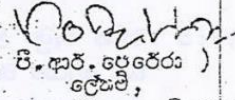 පී. ආර්. පෙරේරා )
ලේකම්,